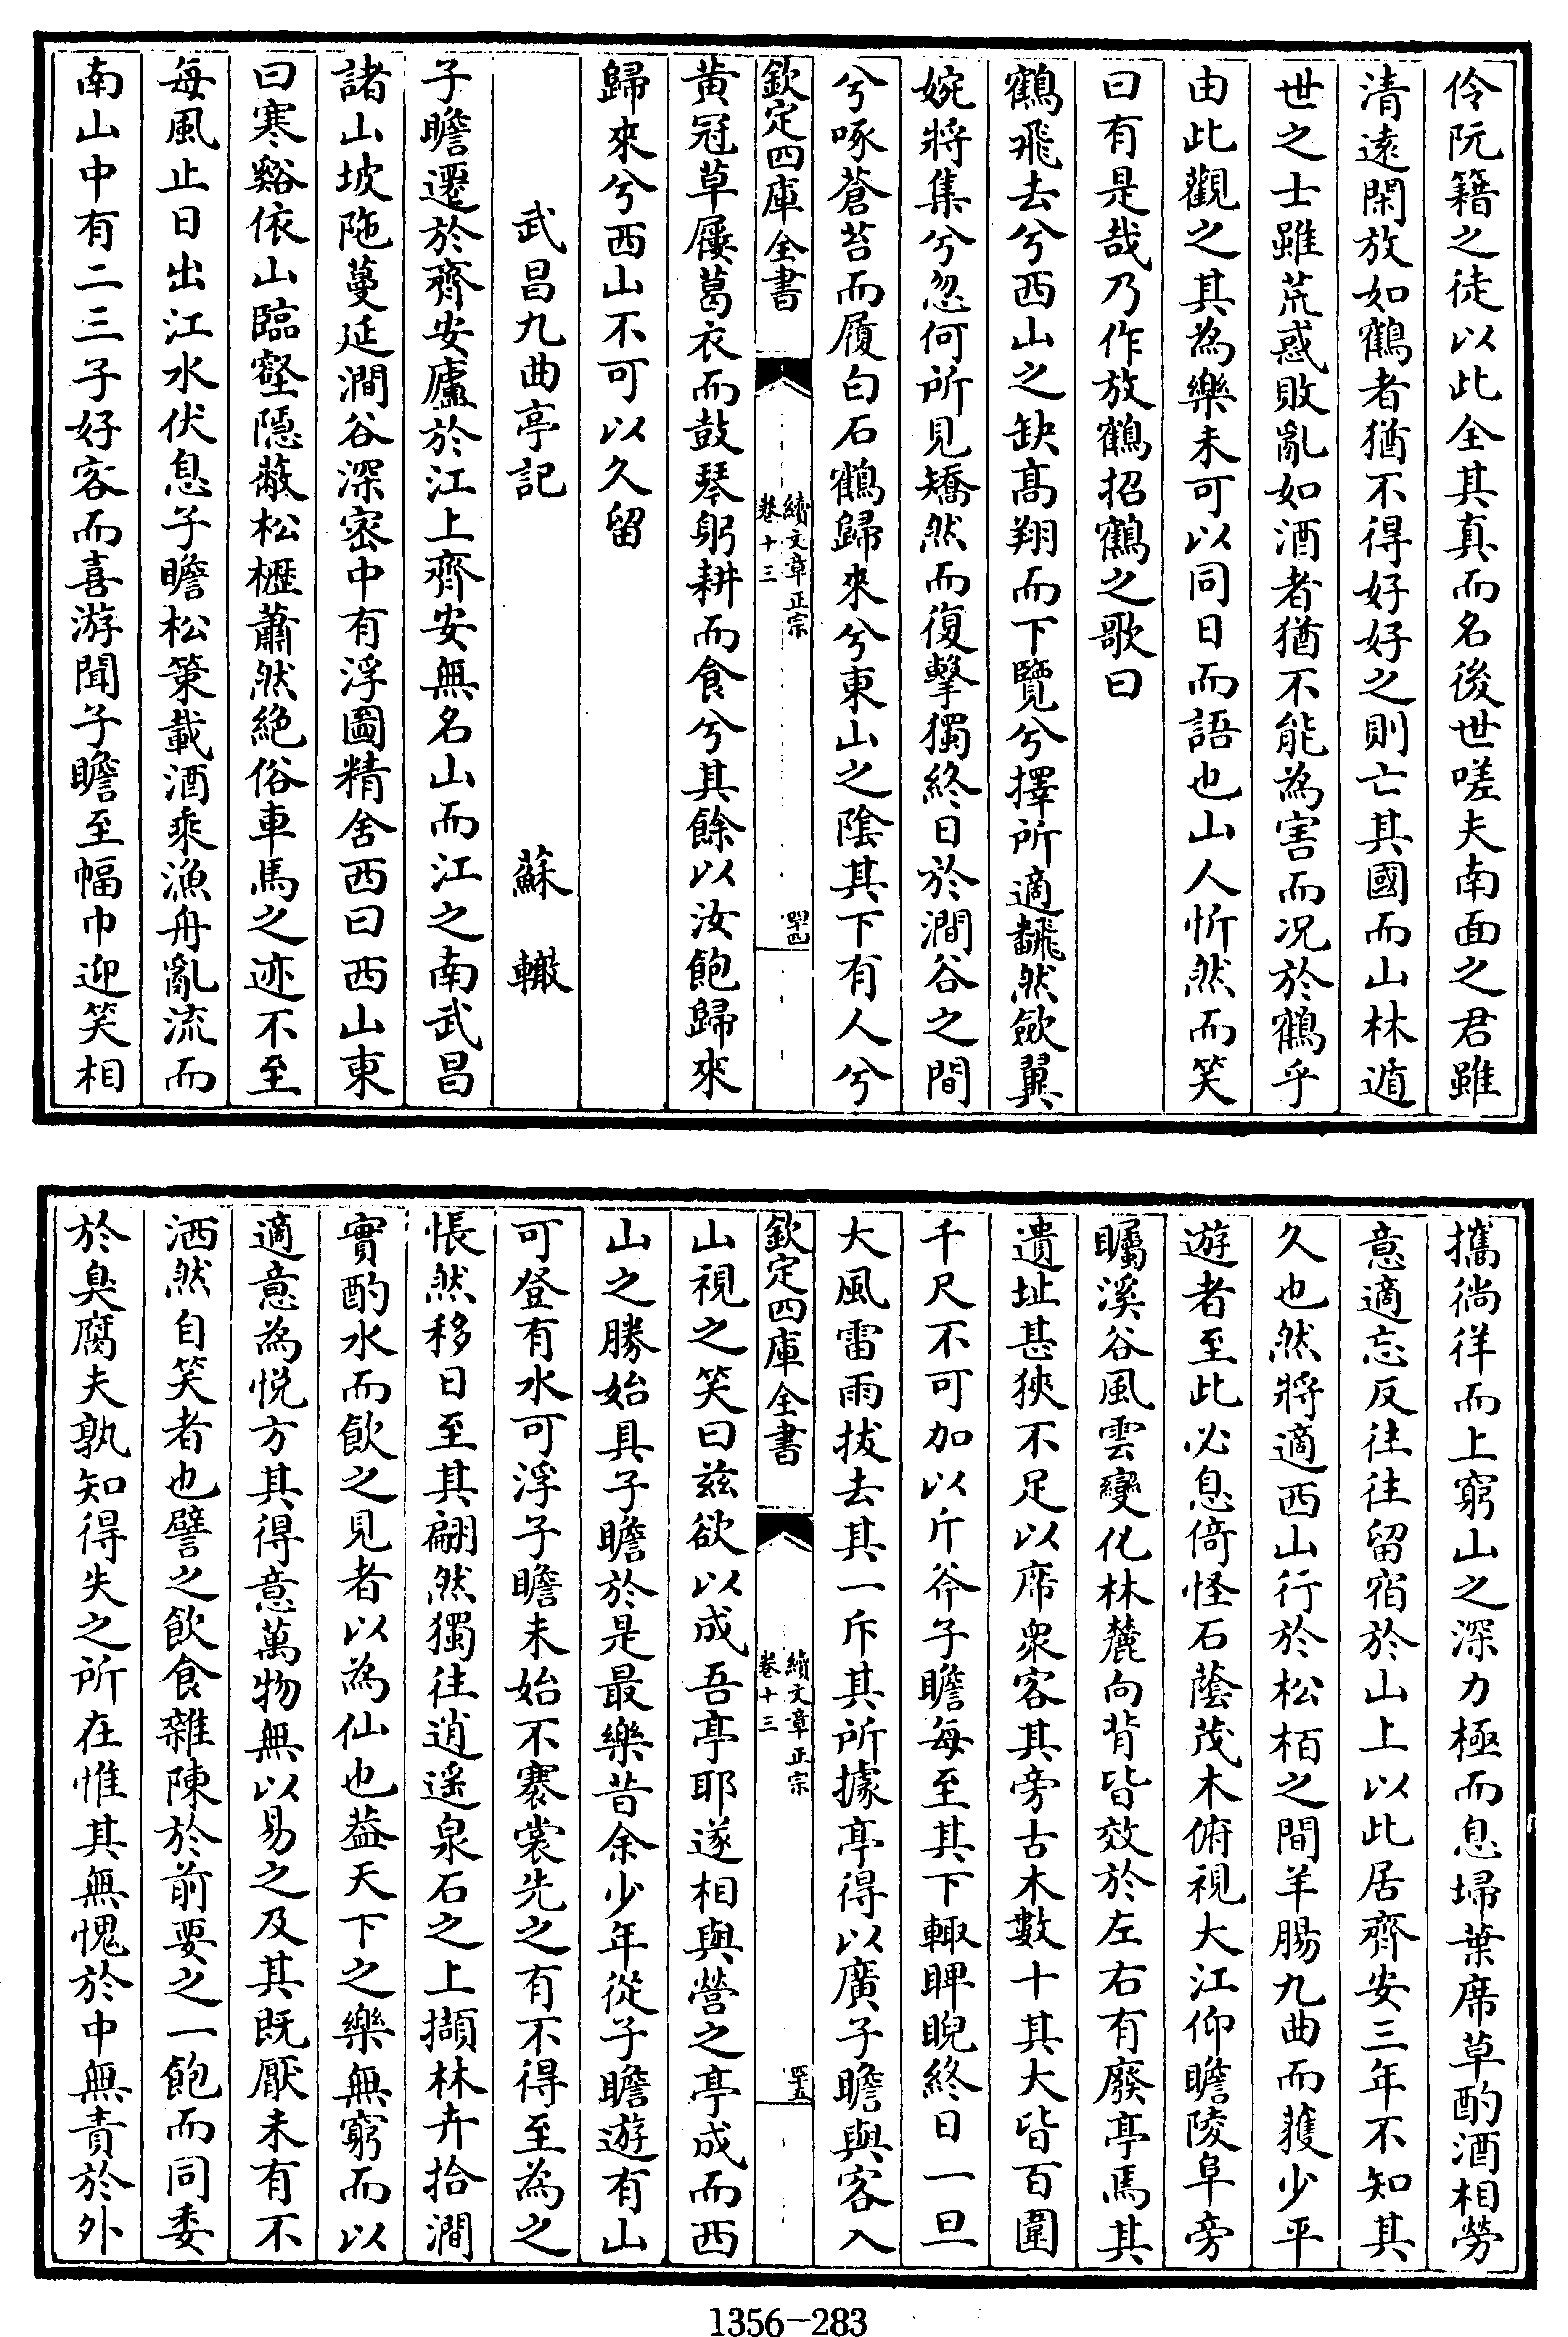 伶阮籍之徒以此全其真而名後世嗟夫南面之君雖
清逺閑放如鶴者猶不得好好之則亡其國而山林遁
世之士雖荒惑敗亂如酒者猶不能為害而况於鶴乎
由此觀之其為樂未可以同日而語也山人忻然而笑
曰有是哉乃作放鶴招鶴之歌曰
鶴飛去兮西山之缺髙翔而下覽兮擇所適翻然斂翼
婉將集兮忽何所見矯然而復擊獨終日於澗谷之間
兮啄蒼苔而履白石鶴歸來兮東山之隂其下有人兮
欽定四庫全書
續文章正宗
卷十三
四十四
黄冠草屨葛衣而鼓琴躬耕而食兮其餘以汝飽歸來
歸來兮西山不可以久留
武昌九曲亭記 蘇轍
子瞻遷於齊安廬於江上齊安無名山而江之南武昌
諸山坡陁蔓延澗谷深密中有浮圖精舍西曰西山東
曰寒谿依山臨壑隱蔽松櫪蕭然絶俗車馬之迹不至
每風止日出江水伏息子瞻松策載酒乘漁舟亂流而
南山中有二三子好客而喜游聞子瞻至幅巾迎笑相
攜徜徉而上窮山之深力極而息埽葉席草酌酒相勞
意適忘反往往留宿於山上以此居齊安三年不知其
久也然將適西山行於松栢之間羊腸九曲而獲少平
遊者至此必息倚怪石蔭茂木俯視大江仰瞻陵阜旁
矚溪谷風雲變化林麓向背皆效於左右有廢亭焉其
遺址甚狹不足以席衆客其旁古木數十其大皆百圍
千尺不可加以斤斧子瞻每至其下輒睥睨終日一旦
大風雷雨拔去其一斥其所據亭得以廣子瞻與客入
欽定四庫全書
續文章正宗
卷十三
四十五
山視之笑曰兹欲以成吾亭耶遂相與營之亭成而西
山之勝始具子瞻於是最樂昔余少年從子瞻遊有山
可登有水可浮子瞻未始不褰裳先之有不得至為之
悵然移日至其翩然獨往逍遥泉石之上擷林卉拾澗
實酌水而飲之見者以為仙也葢天下之樂無窮而以
適意為悦方其得意萬物無以易之及其既厭未有不
洒然自笑者也譬之飲食雜陳於前要之一飽而同委
於臭腐夫孰知得失之所在惟其無愧於中無責於外
1356—283